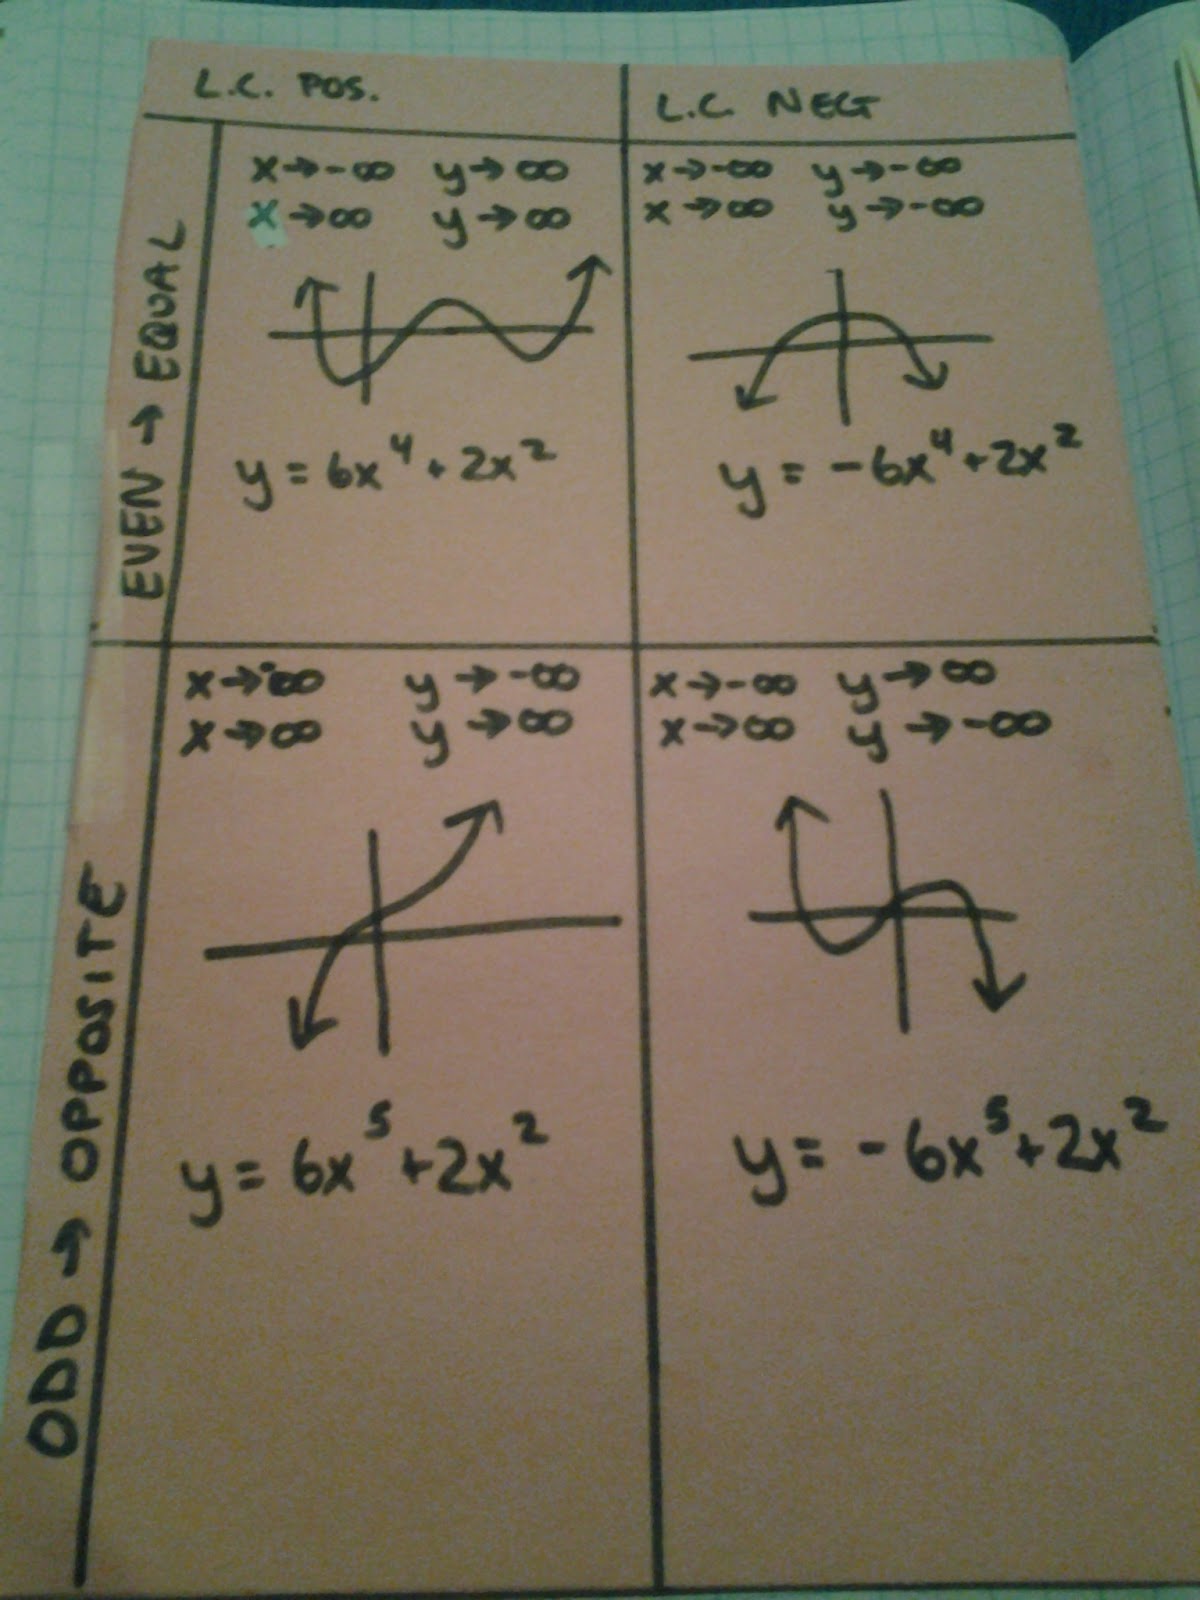 L.C. POS.
L.C. NEG
EVEN → EQUAL
x→-∞ y→∞
x→∞ y→∞
y = 6x⁴ + 2x²
x→-∞ y→-∞
x→∞ y→-∞
y = -6x⁴ + 2x²
ODD → OPPOSITE
x→-∞ y→-∞
x→∞ y→∞
y = 6x⁵ + 2x²
x→-∞ y→∞
x→∞ y→-∞
y = -6x⁵ + 2x²